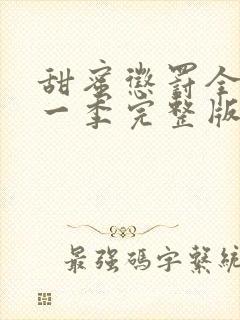 甜蜜懲罰全
一季完整版
最強碼字繫統